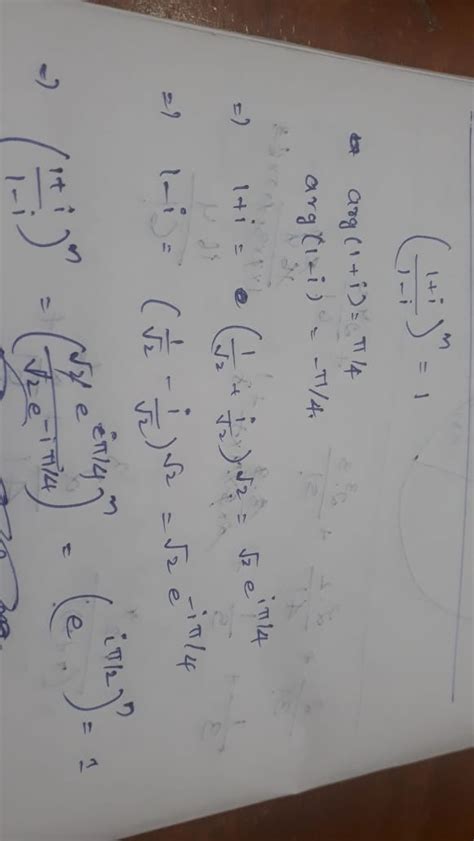 (1+i / 1-i)^n = 1
arg(1+i) = π/4
arg(1-i) = -π/4
=> 1+i = (1/√2 + i/√2)√2 = √2 e^{iπ/4}
=> 1-i = (1/√2 - i/√2)√2 = √2 e^{-iπ/4}
=> (1+i / 1-i)^n = (√2 e^{iπ/4} / √2 e^{-iπ/4})^n = (e^{iπ/2})^n = 1